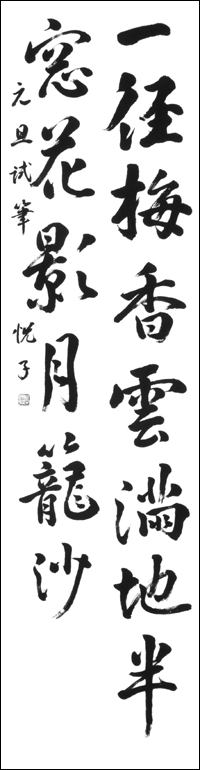 一径梅香雲満地半
窓花影月籠沙
元旦試筆 悦子